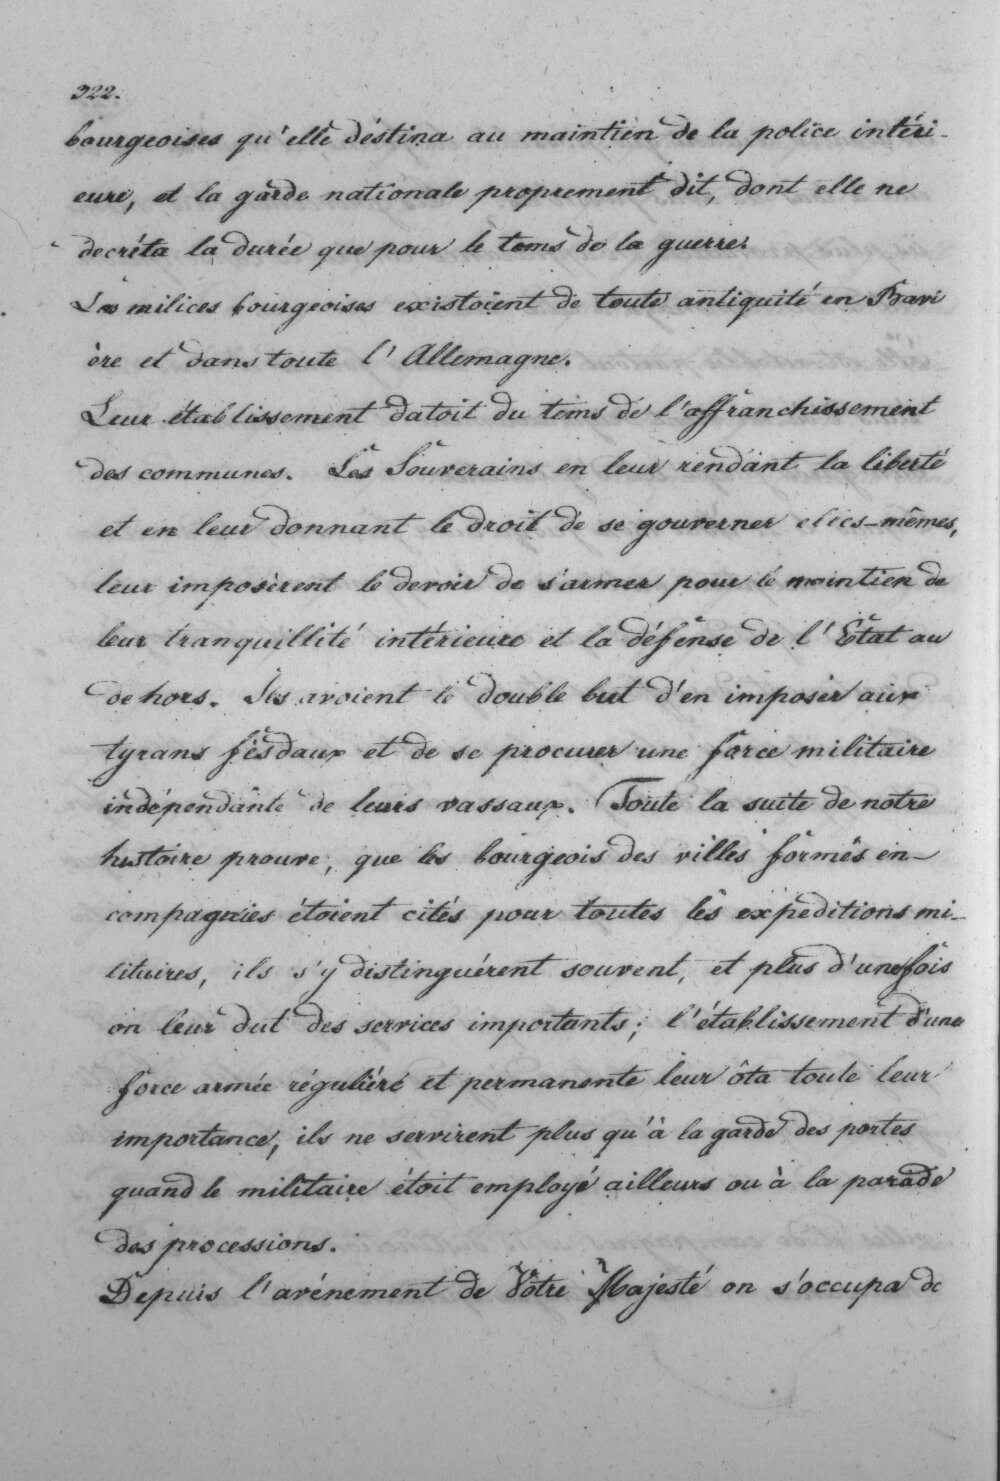 322.
bourgeoises qu'elle déstina au maintien de la police intéri-
eure, et la garde nationale proprement dit, dont elle ne
decréta la durée que pour le tems de la guerre.
Les milices bourgeoises existoient de toute antiquité en Bavi
ère et dans toute l'Allemagne.
Leur établissement datoit du tems de l'affranchissement
des communes. Les Souverains en leur rendant la liberté
et en leur donnant le droit de se gouverner elles-mêmes,
leur imposèrent le devoir de s'armer pour le maintien de
leur tranquillité intérieure et la défense de l'Etat au
dehors. Ils avoient le double but d'en imposer aux
tyrans fésdaux et de se procurer une force militaire
indépendante de leurs vassaux. Toute la suite de notre
histoire prouve, que les bourgeois des villes formés en-
compagnies étoient cités pour toutes les expéditions mi-
lituires, ils s'y distinguérent souvent, et plus d'une fois
on leur dut des services importants; l'établissement d'une
force armée réguliére et permanente leur ôta toute leur
importance, ils ne servirent plus qu'à la garde des portes
quand le militaire étoit employé ailleurs ou à la parade
des processions.
Depuis l'avénement de Votre Majesté on s'occupa de